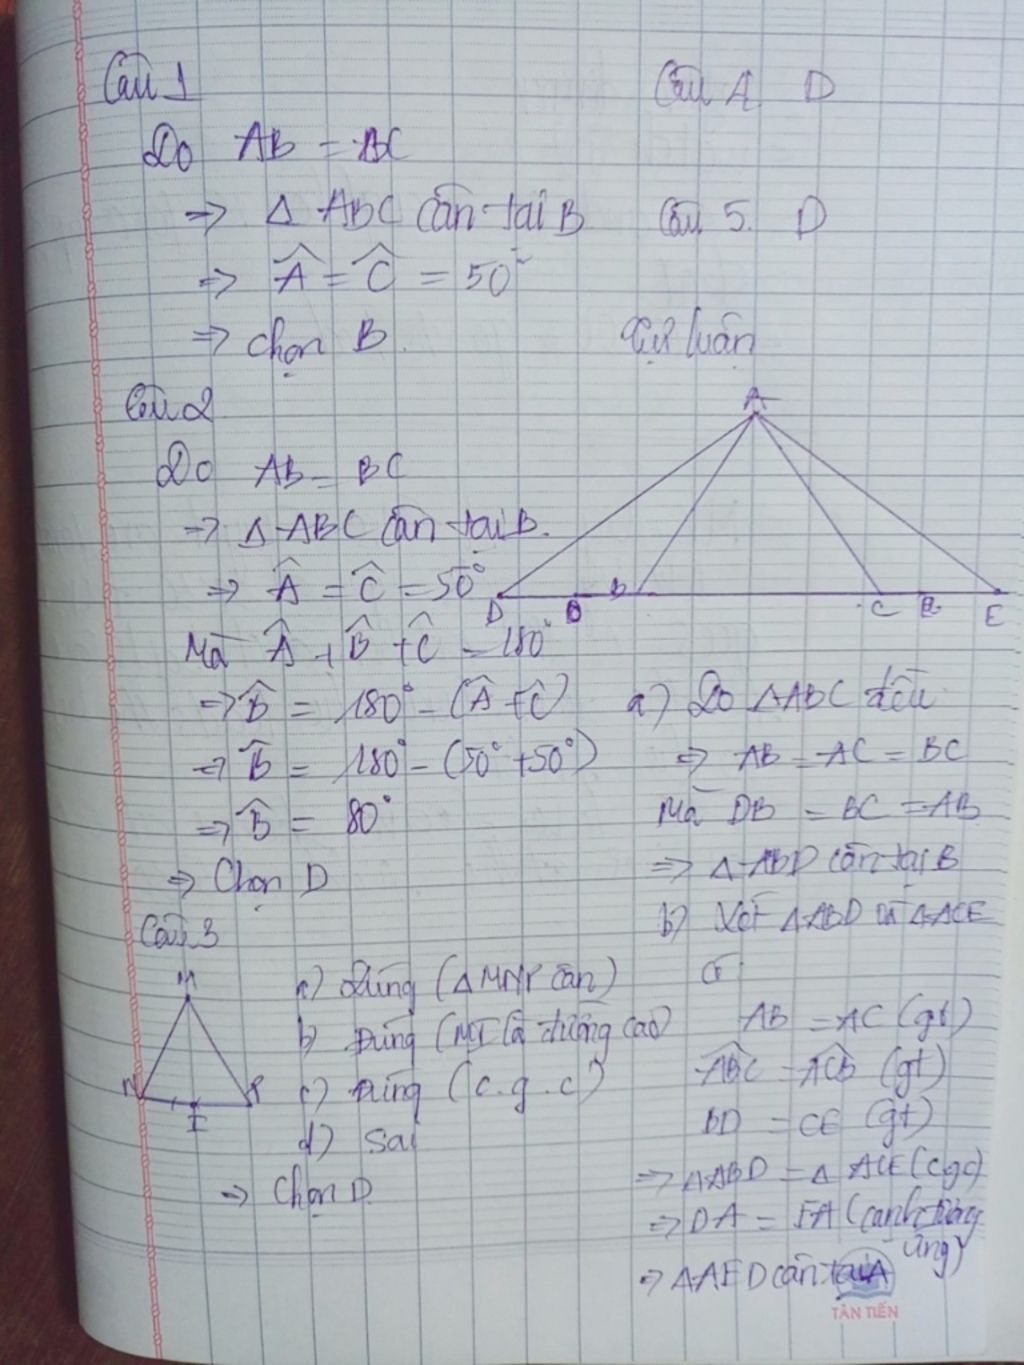 Câu 1
Do AB = BC
=> Δ ABC cân tại B
=> Â = Ĉ = 50°
=> Chọn B.
Câu 2
Do AB = BC
=> Δ ABC cân tại B.
=> Â = Ĉ = 50°
Mà Â + B̂ + Ĉ = 180°
=> B̂ = 180° - (Â + Ĉ)
=> B̂ = 180° - (50° + 50°)
=> B̂ = 80°
=> Chọn D
Câu 3
M
N
I
P
a) Đúng (Δ MNP cân)
b) Đúng (MI là đường cao)
c) Đúng (c.g.c)
d) Sai
=> Chọn D
Câu 4 D
Câu 5. D
Tự luận
A
D
B
C
E
a) Do ΔABC đều
=> AB = AC = BC
Mà DB = BC = AB
=> Δ ABD cân tại B
b) Xét ΔABD và ΔACE
có
AB = AC (gt)
ABC = ACB (gt)
BD = CE (gt)
=> ΔABD = Δ ACE (cgc)
=> DA = EA (cạnh tương
ứng)
=> ΔAED cân tại A
TÂN TIẾN